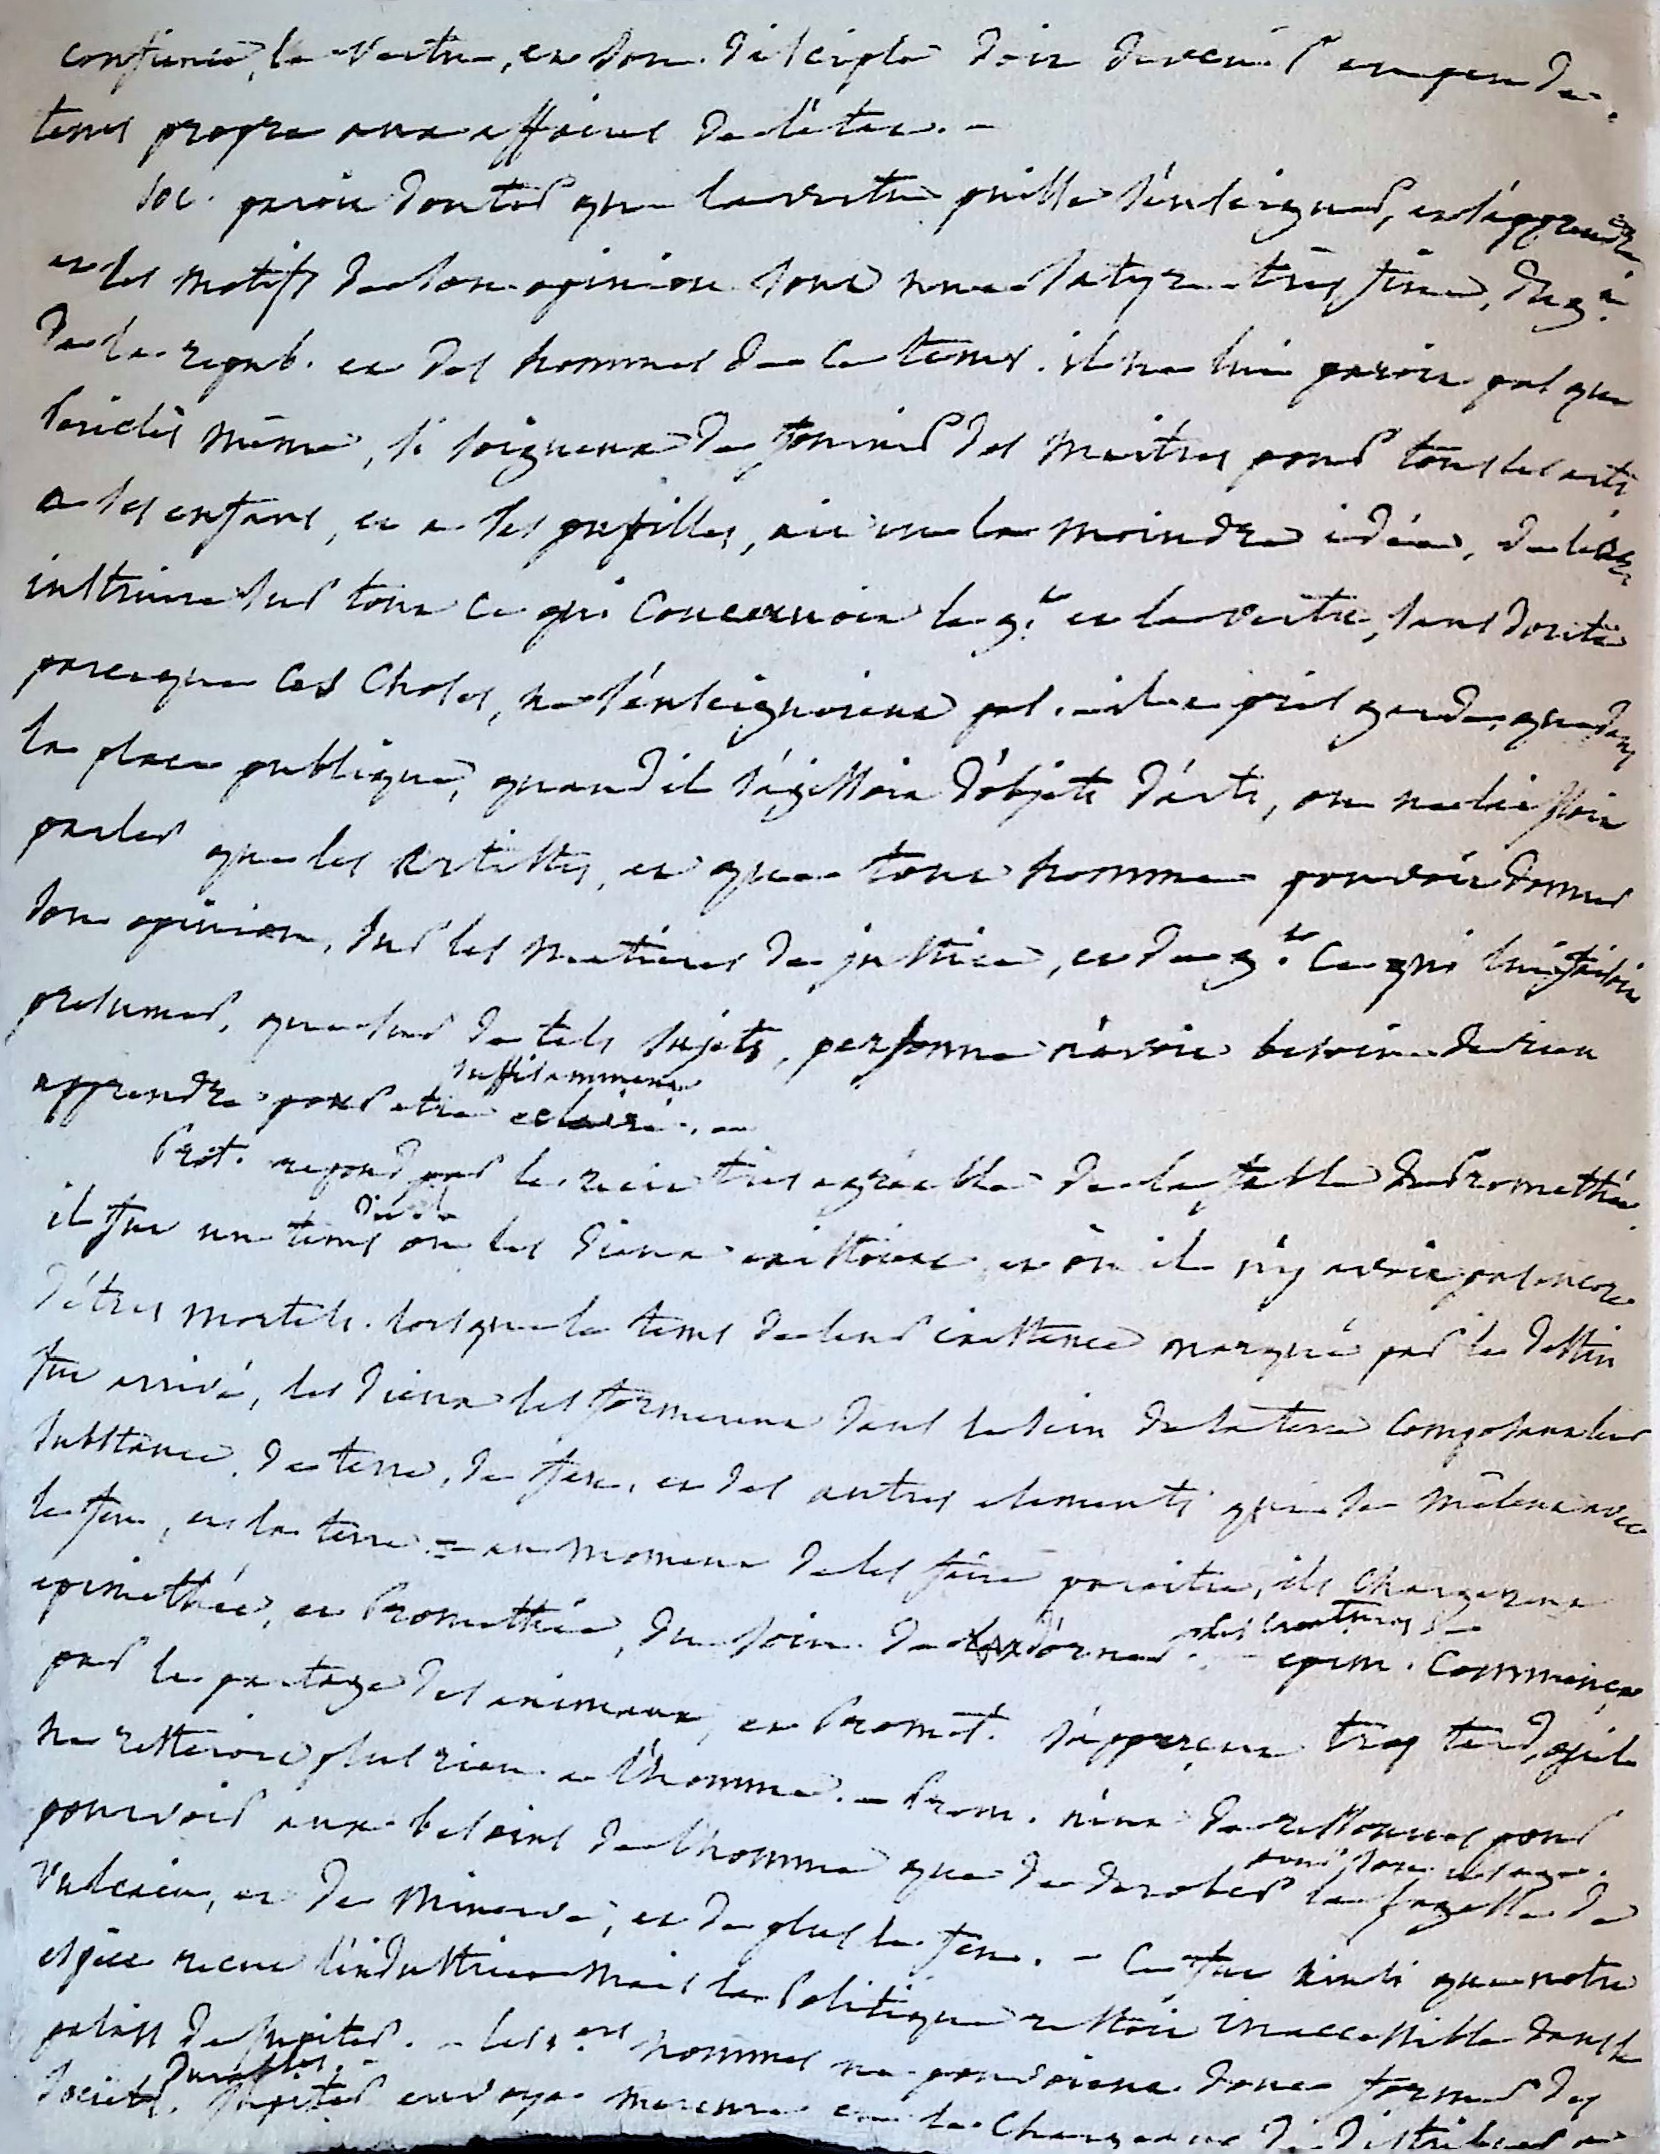 la vertu, et son disciple doit devenir en peu de
tems propre aux affaires de l'état. –
Soc. paroit douter que la vertu puisse s'enseigner, et s'apprendre,
et les motifs de son opinion sont une satyre très fine, du g.t
de la repub. et des hommes de ce tems. il ne lui paroit pas que
Périclès même, si soigneux de fournir des maitres pour tous les arts
a ses enfans, et a ses pupilles, ait eu la moindre idée, de les
instruire sur tout ce qui concernoit le g.t et la vertu, sans doute
parceque ces choses, ne s'enseignoient pas. il a pris garde, que dans
la place publique, quand il s'agissoit d'objets d'arts, on ne laissoit
parler que les artistes, et que tout homme pouvoit donner
son opinion, sur les matieres de justice, et de g.t ce qui lui faisoit
presumer, que sur de tels sujets, personne n'avoit besoin de rien
apprendre pour etre suffisamment eclairé. –
Prot. repond par le recit très agréable de la fable de Promethée.
il fut un tems où les Dieux existoient et où il n'y avoit pas encore
d'êtres mortels. lorsque le tems de leur existence marqué par le destin
fut arrivé, les dieux les formerent dans le sein de la terre composant leur
substance, de terre, de feu, et des autres elements qui se mêlent avec
le feu, et la terre = au moment de les faire paroitre, ils chargerent
epimethée, et Promethée, du soin de d'orner les creatures – epim. commença
par le partage des animaux, et Promet. s'apperçut trop tard, qu'il
ne restoit plus rien a l'homme. – Prom. n'eut de ressources pour
pourvoir aux besoins de l'homme que de derober pour son usage la sagesse de
Vulcain, et de Minerve, et de plus le feu. – Ce fut ainsi que notre
espèce recut l'industrie mais la Politique restoit inaccessible dans le
palais de Jupiter. – les 1.ers hommes ne pouvoient donc former des
sociétés durables. Jupiter envoya mercure en le chargeant de distribuer